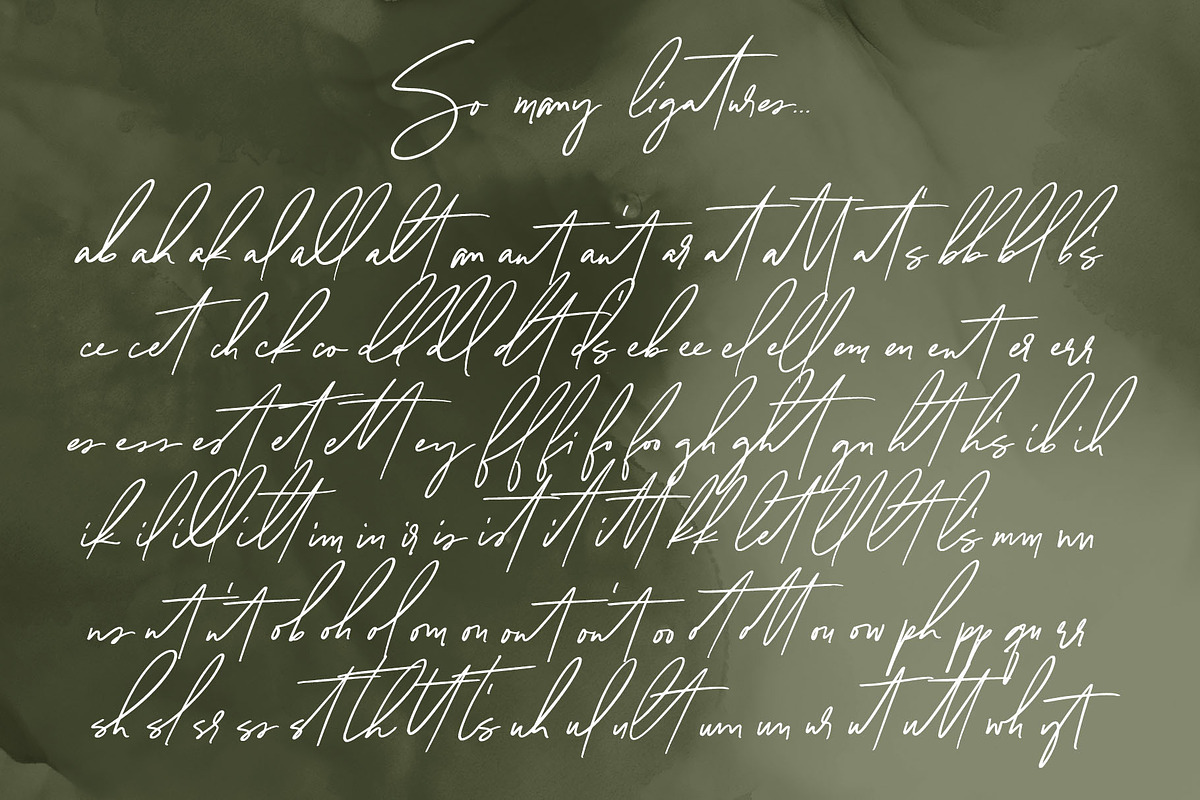 So many ligatures...
ab ah ak al all alt an ant an't ar at att at's bb bl b's
ce cet ch ck co dd dll dt d's eb ee el ell em en ent er err
es ess est et ett ey ff fi fo foo gh ght gn ht h's ib ih
ik il ill ilt im in ir is ist it itt kk let ll lt l's mm nn
ns nt n't ob oh ol om on ont on't oo ot ott ou ow ph pp qu rr
sh sl sr ss st th tt t's uh ul ult um un ur ut utt wh yt